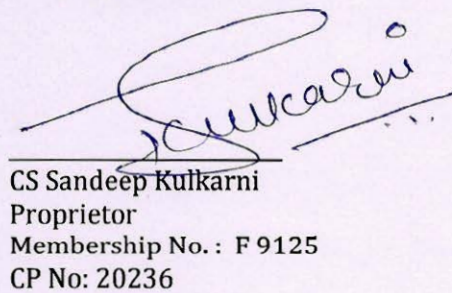 SKulkarni
CS Sandeep Kulkarni
Proprietor
Membership No. : F 9125
CP No: 20236